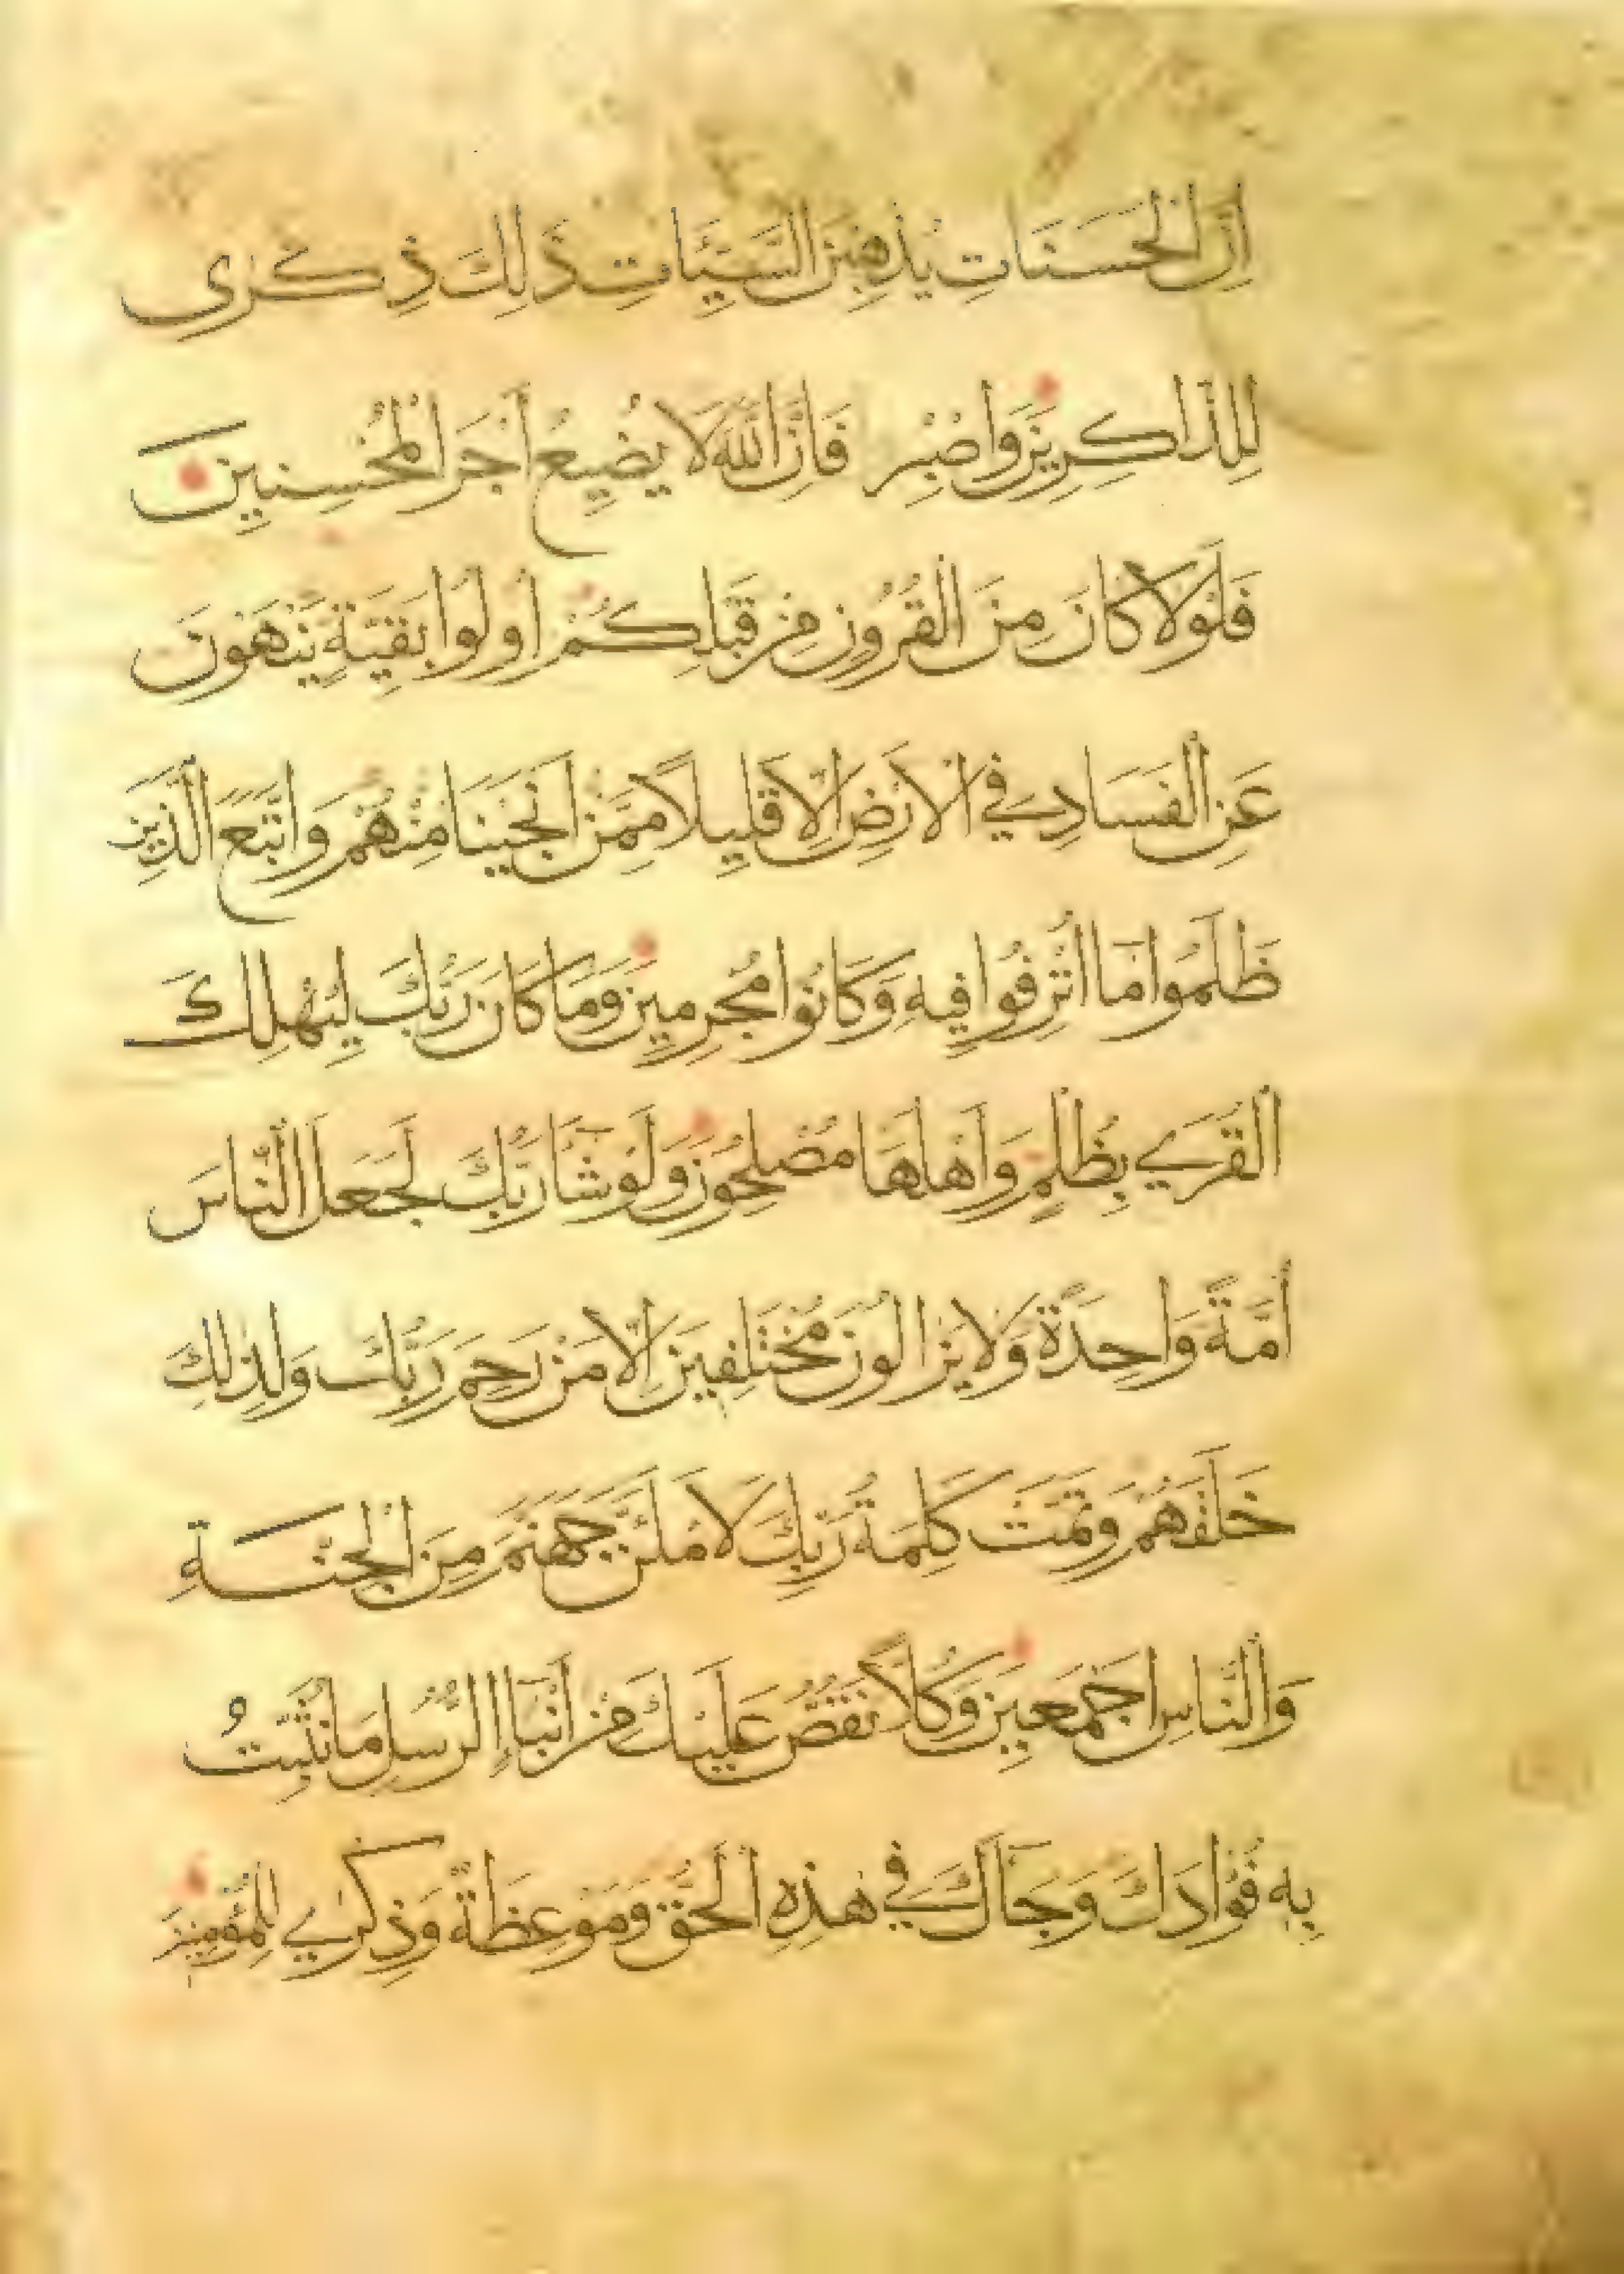 اِنَّ الْحَسَنَاتِ يُذْهِبْنَ السَّيِّئَاتِ ذَلِكَ ذِكْرٰى
لِلذَّاكِرِيْنَ وَاصْبِرْ فَاِنَّ اللّٰهَ لَا يُضِيْعُ اَجْرَ الْمُحْسِنِيْنَ
فَلَوْلَا كَانَ مِنَ الْقُرُوْنِ مِنْ قَبْلِكُمْ اُولُوْا بَقِيَّةٍ يَنْهَوْنَ
عَنِ الْفَسَادِ فِي الْاَرْضِ اِلَّا قَلِيْلًا مِمَّنْ اَنْجَيْنَا مِنْهُمْ وَاتَّبَعَ الَّذِيْنَ
ظَلَمُوْا مَا اُتْرِفُوْا فِيْهِ وَكَانُوْا مُجْرِمِيْنَ وَمَا كَانَ رَبُّكَ لِيُهْلِكَ
الْقُرٰي بِظُلْمٍ وَاَهْلُهَا مُصْلِحُوْنَ وَلَوْ شَآ رَبُّكَ لَجَعَلَ النَّاسَ
اُمَّةً وَاحِدَةً وَلَا يَزَالُوْنَ مُخْتَلِفِيْنَ اِلَّا مَنْ رَحِمَ رَبُّكَ وَلِذٰلِكَ
خَلَقَهُمْ وَتَمَّتْ كَلِمَةُ رَبِّكَ لَاَمْلَئَنَّ جَهَنَّمَ مِنَ الْجِنَّةِ
وَالنَّاسِ اَجْمَعِيْنَ وَكُلًّا نَقُصُّ عَلَيْكَ مِنْ اَنْبَآءِ الرُّسُلِ مَا نُثَبِّتُ
بِهٖ فُؤَادَكَ وَجَآكَ فِي هٰذِهِ الْحَقُّ وَمَوْعِظَةٌ وَذِكْرٰي لِلْمُؤْمِنِيْنَ